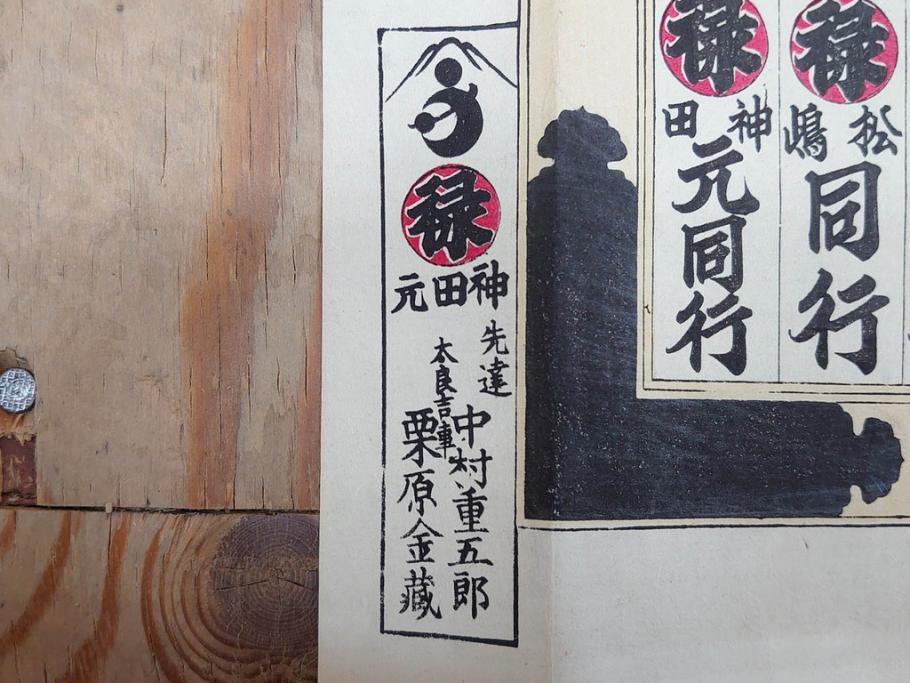 禄
松嶋
同行
禄
神田
元同行
禄
神田元
先達
中村重五郎
太良吉事
栗原金藏